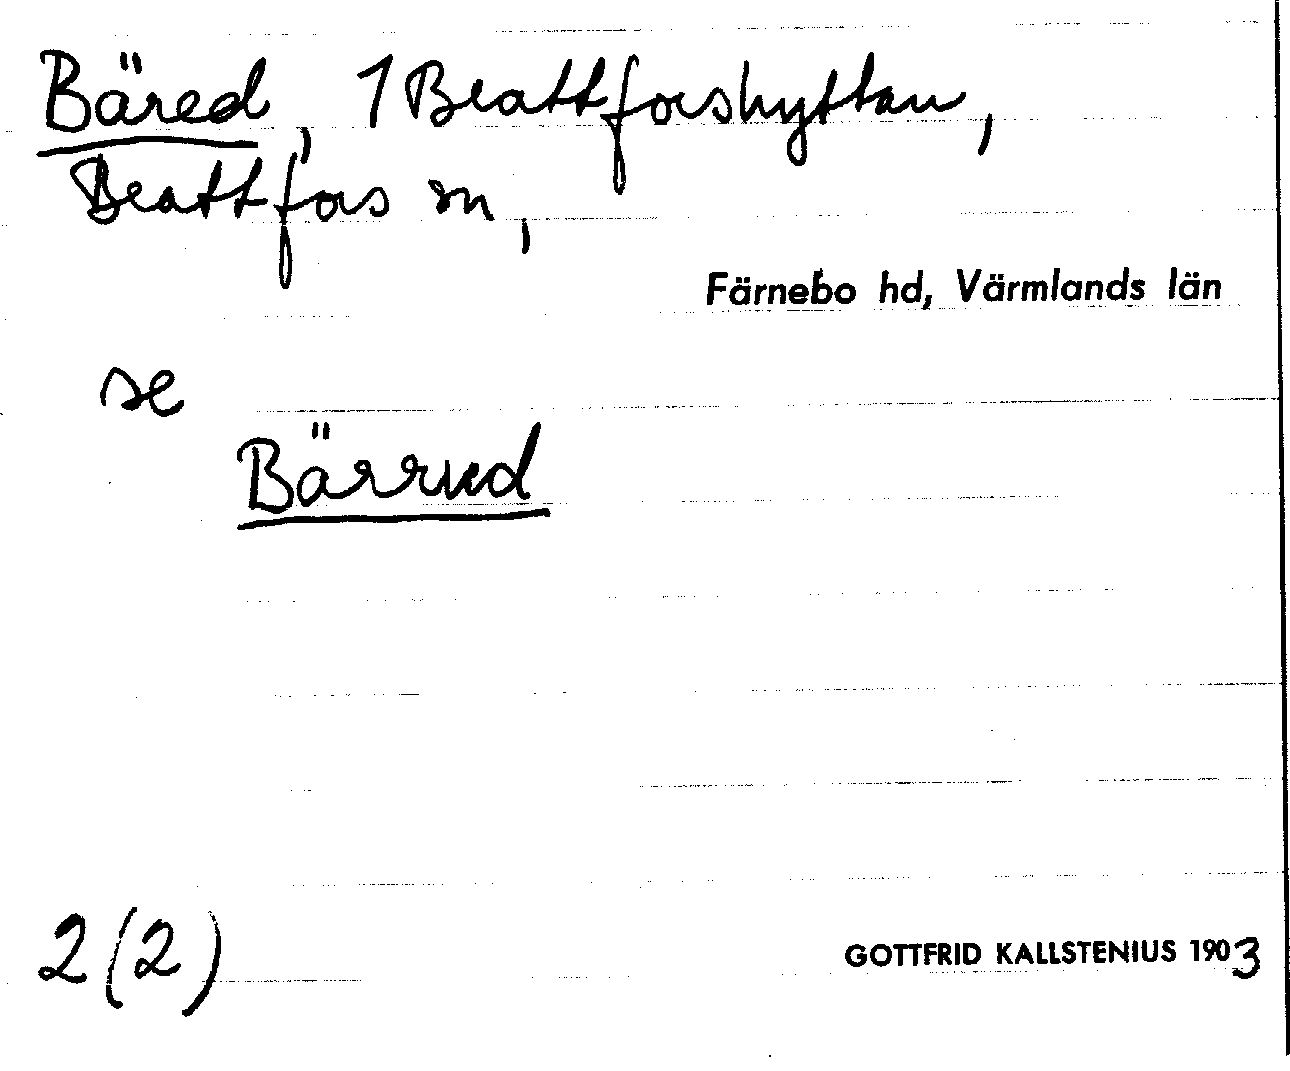 Bäred, 1 Brattforshyttan,
Brattfors sn,
Färnebo hd, Värmlands län
se
Bärrud
2(2)
GOTTFRID KALLSTENIUS 1903